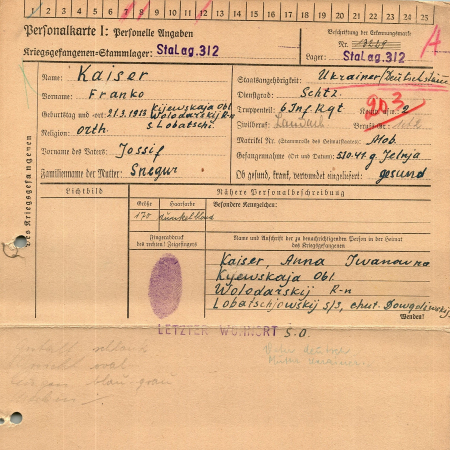 1 2 3 4 5 6 7 8 9 10 11 12 13 14 15 16 17 18 19 20 21 22 23 24 25
Personalkarte I: Personelle Angaben
Kriegsgefangenen-Stammlager: Stalag.312
Beschriftung der Erkennungsmarke
Nr.
Lager: Stalag.312
A
Des Kriegsgefangenen
Name: Kaiser
Vorname: Franko
Geburtstag und -ort 21.3.1913 Kijewskaja Obl
Wolodarskij R-n
s. Lobatschi
Religion: Orth.
Vorname des Vaters: Jossif
Familienname der Mutter: Snegur
Staatsangehörigkeit: Ukrainer/Deutschstäm
Dienstgrad: Schtz.
Truppenteil: 6 Inf Rgt Kom 2
203
Zivilberuf: Berufs-Gr.
Matrikel Nr. (Stammrolle des Heimatstaates) Mob.
Gefangennahme (Ort und Datum) 5.10.41 g. Jelnja
Ob gesund, krank, verwundet eingeliefert: gesund
Lichtbild
Nähere Personalbeschreibung
Größe Haarfarbe Besondere Kennzeichen:
170 dunkelblond
Fingerabdruck
des rechten! Zeigefingers
Name und Anschrift der zu benachrichtigenden Person in der Heimat
des Kriegsgefangenen
Kaiser, Anna Iwanowna
Kijewskaja Obl.
Wolodarskij R-n
Lobatschjowskij s/s, chut.
Wenden!
LETZTER WOHNORT S.O.